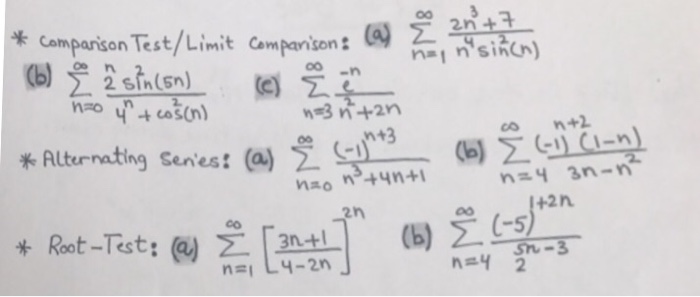 * Comparison Test/Limit Comparison: (a) ∞∑n=1 (2n³+7)/(n⁴ sin²(n))
(b) ∞∑n=0 (2ⁿ sin²(5n))/(4ⁿ + cos²(n)) (c) ∞∑n=3 e⁻ⁿ/(n²+2n)
* Alternating Series: (a) ∞∑n=0 (-1)ⁿ⁺³/(n³+4n+1) (b) ∞∑n=4 ((-1)ⁿ⁺² (1-n))/(3n-n²)
* Root-Test: (a) ∞∑n=1 [(3n+1)/(4-2n)]²ⁿ (b) ∞∑n=4 (-5)¹⁺²ⁿ/2⁵ⁿ⁻³